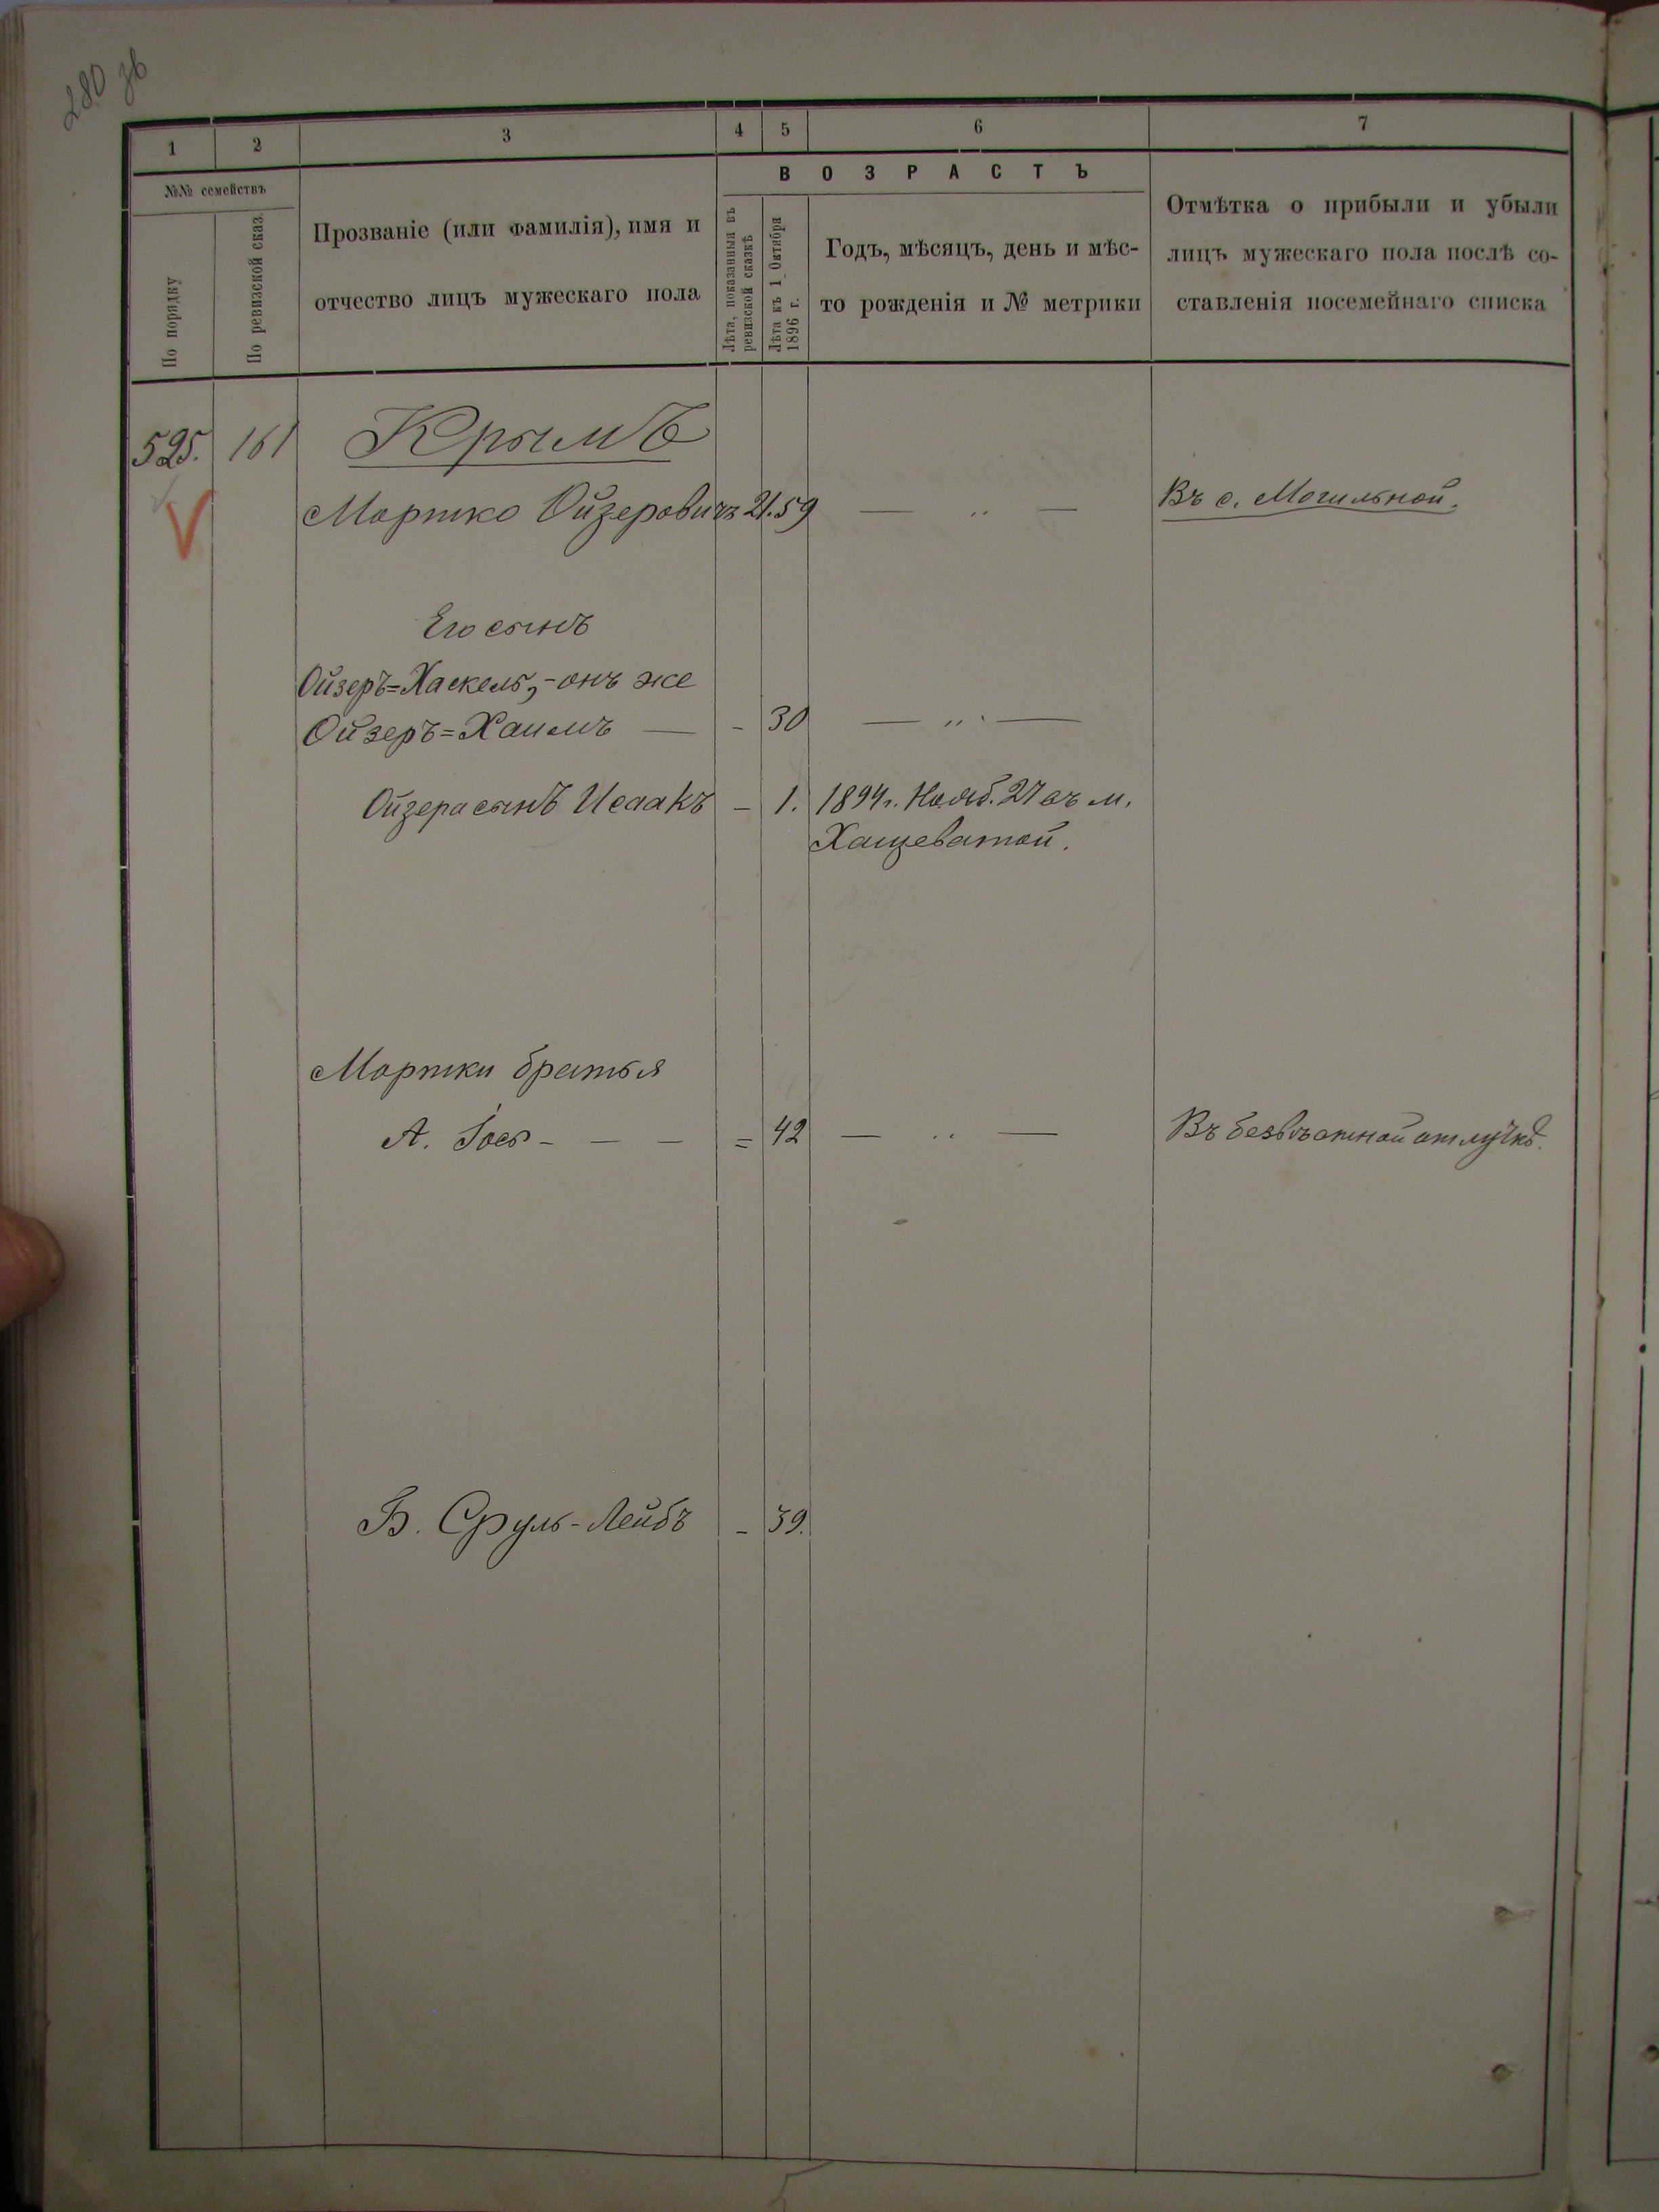 280 зв
1 2 3 4 5 6 7
№№ семействъ
По порядку
По ревизской сказ.
Прозваніе (или фамилія), имя и
отчество лицъ мужескаго пола
ВОЗРАСТЪ
Лѣта, показанныя въ
ревизской сказкѣ
Лѣта къ 1 Октября
1896 г.
Годъ, мѣсяцъ, день и мѣс-
то рожденія и № метрики
Отмѣтка о прибыли и убыли
лицъ мужескаго пола послѣ со-
ставленія посемейнаго списка
525. 161 Крымъ
Мортко Ойзеровичъ 21. 59 — „ — Въ с. Могильной.
Его сынъ
Ойзеръ=Хаскель, - онъ же
Ойзеръ=Хаимъ — - 30 — „ —
Ойзера сынъ Исаакъ - 1. 1894 г. Нояб. 27 въ м.
Хащеватой.
Мортки братья
А. Іось - — — = 42 — „ — Въ безвѣстной отлучкѣ.
Б. Сруль-Лейбъ - 39.